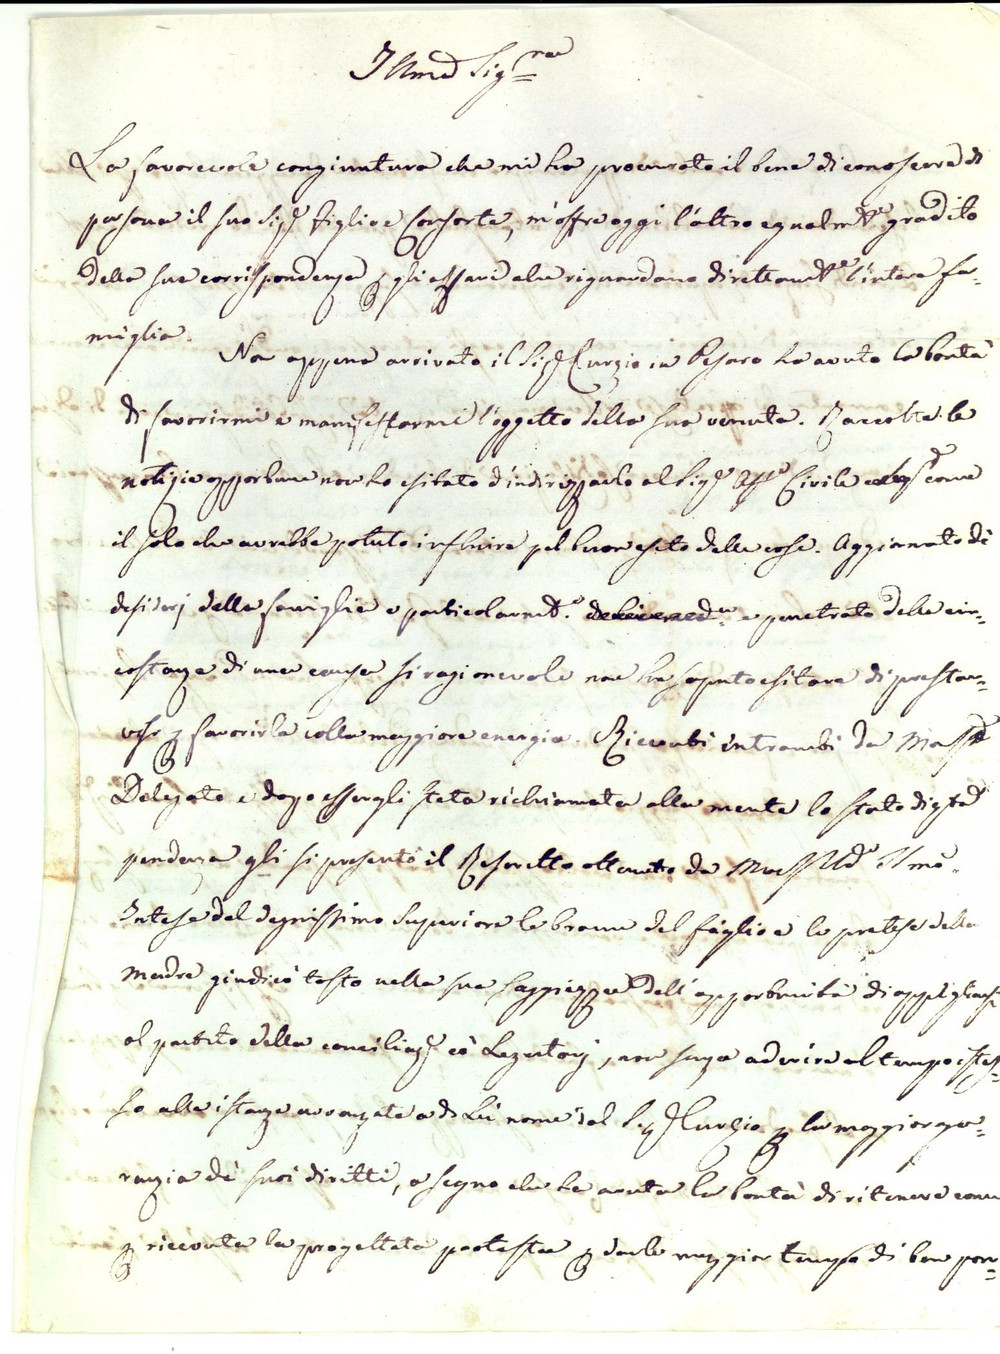 Illmo Sig.re
La favorevole congiuntura che mi ha procurato il bene di conoscere di
persona il suo Sig.r figlio e Consorte, m'offre oggi l'altro egualm.te gradito
della sua corrispondenza p gli affari che riguardano direttam.te l'intera fa-
miglia.
Non appena arrivato il Sig.r Curzio in Pesaro ha avuto la bontà
di favorirmi e manifestarmi l'oggetto della sua venuta. Raccolte le
notizie opportune non ho esitato d'indirizzarlo al Sig.r Ass.e Civile come
il solo che avrebbe potuto influire pel buon esito delle cose. Aggiornato de'
desiderj della famiglia e particolarm.e e penetrato delle cir-
costanze di una causa sì ragionevole non ha saputo esitare di prestar-
visi p favorirla colla maggiore energia. Ricevuti entrambi da Mons.r
Delegato e dopo essergli stata richiamata alla mente lo stato di q.sta
pendenza gli si presentò il Rescritto ottenuto da Mons.r Ill.mo.
Intese dal degnissimo Superiore le brame del figlio e le pretese della
Madre giudicò tosto nella sua saggiezza dell'opportunità di appigliarsi
al partito della conciliaz.e co' Legatorj, non senza aderire al tempo istes-
so alle istanze avanzate a di Lei nome dal Sig.r Curzio p la maggior ga-
ranzia de' suoi diritti, a segno che ha avuta la bontà di ritenere come
p ricevuta la progettata protesta p darle maggior tempo di ben pon-